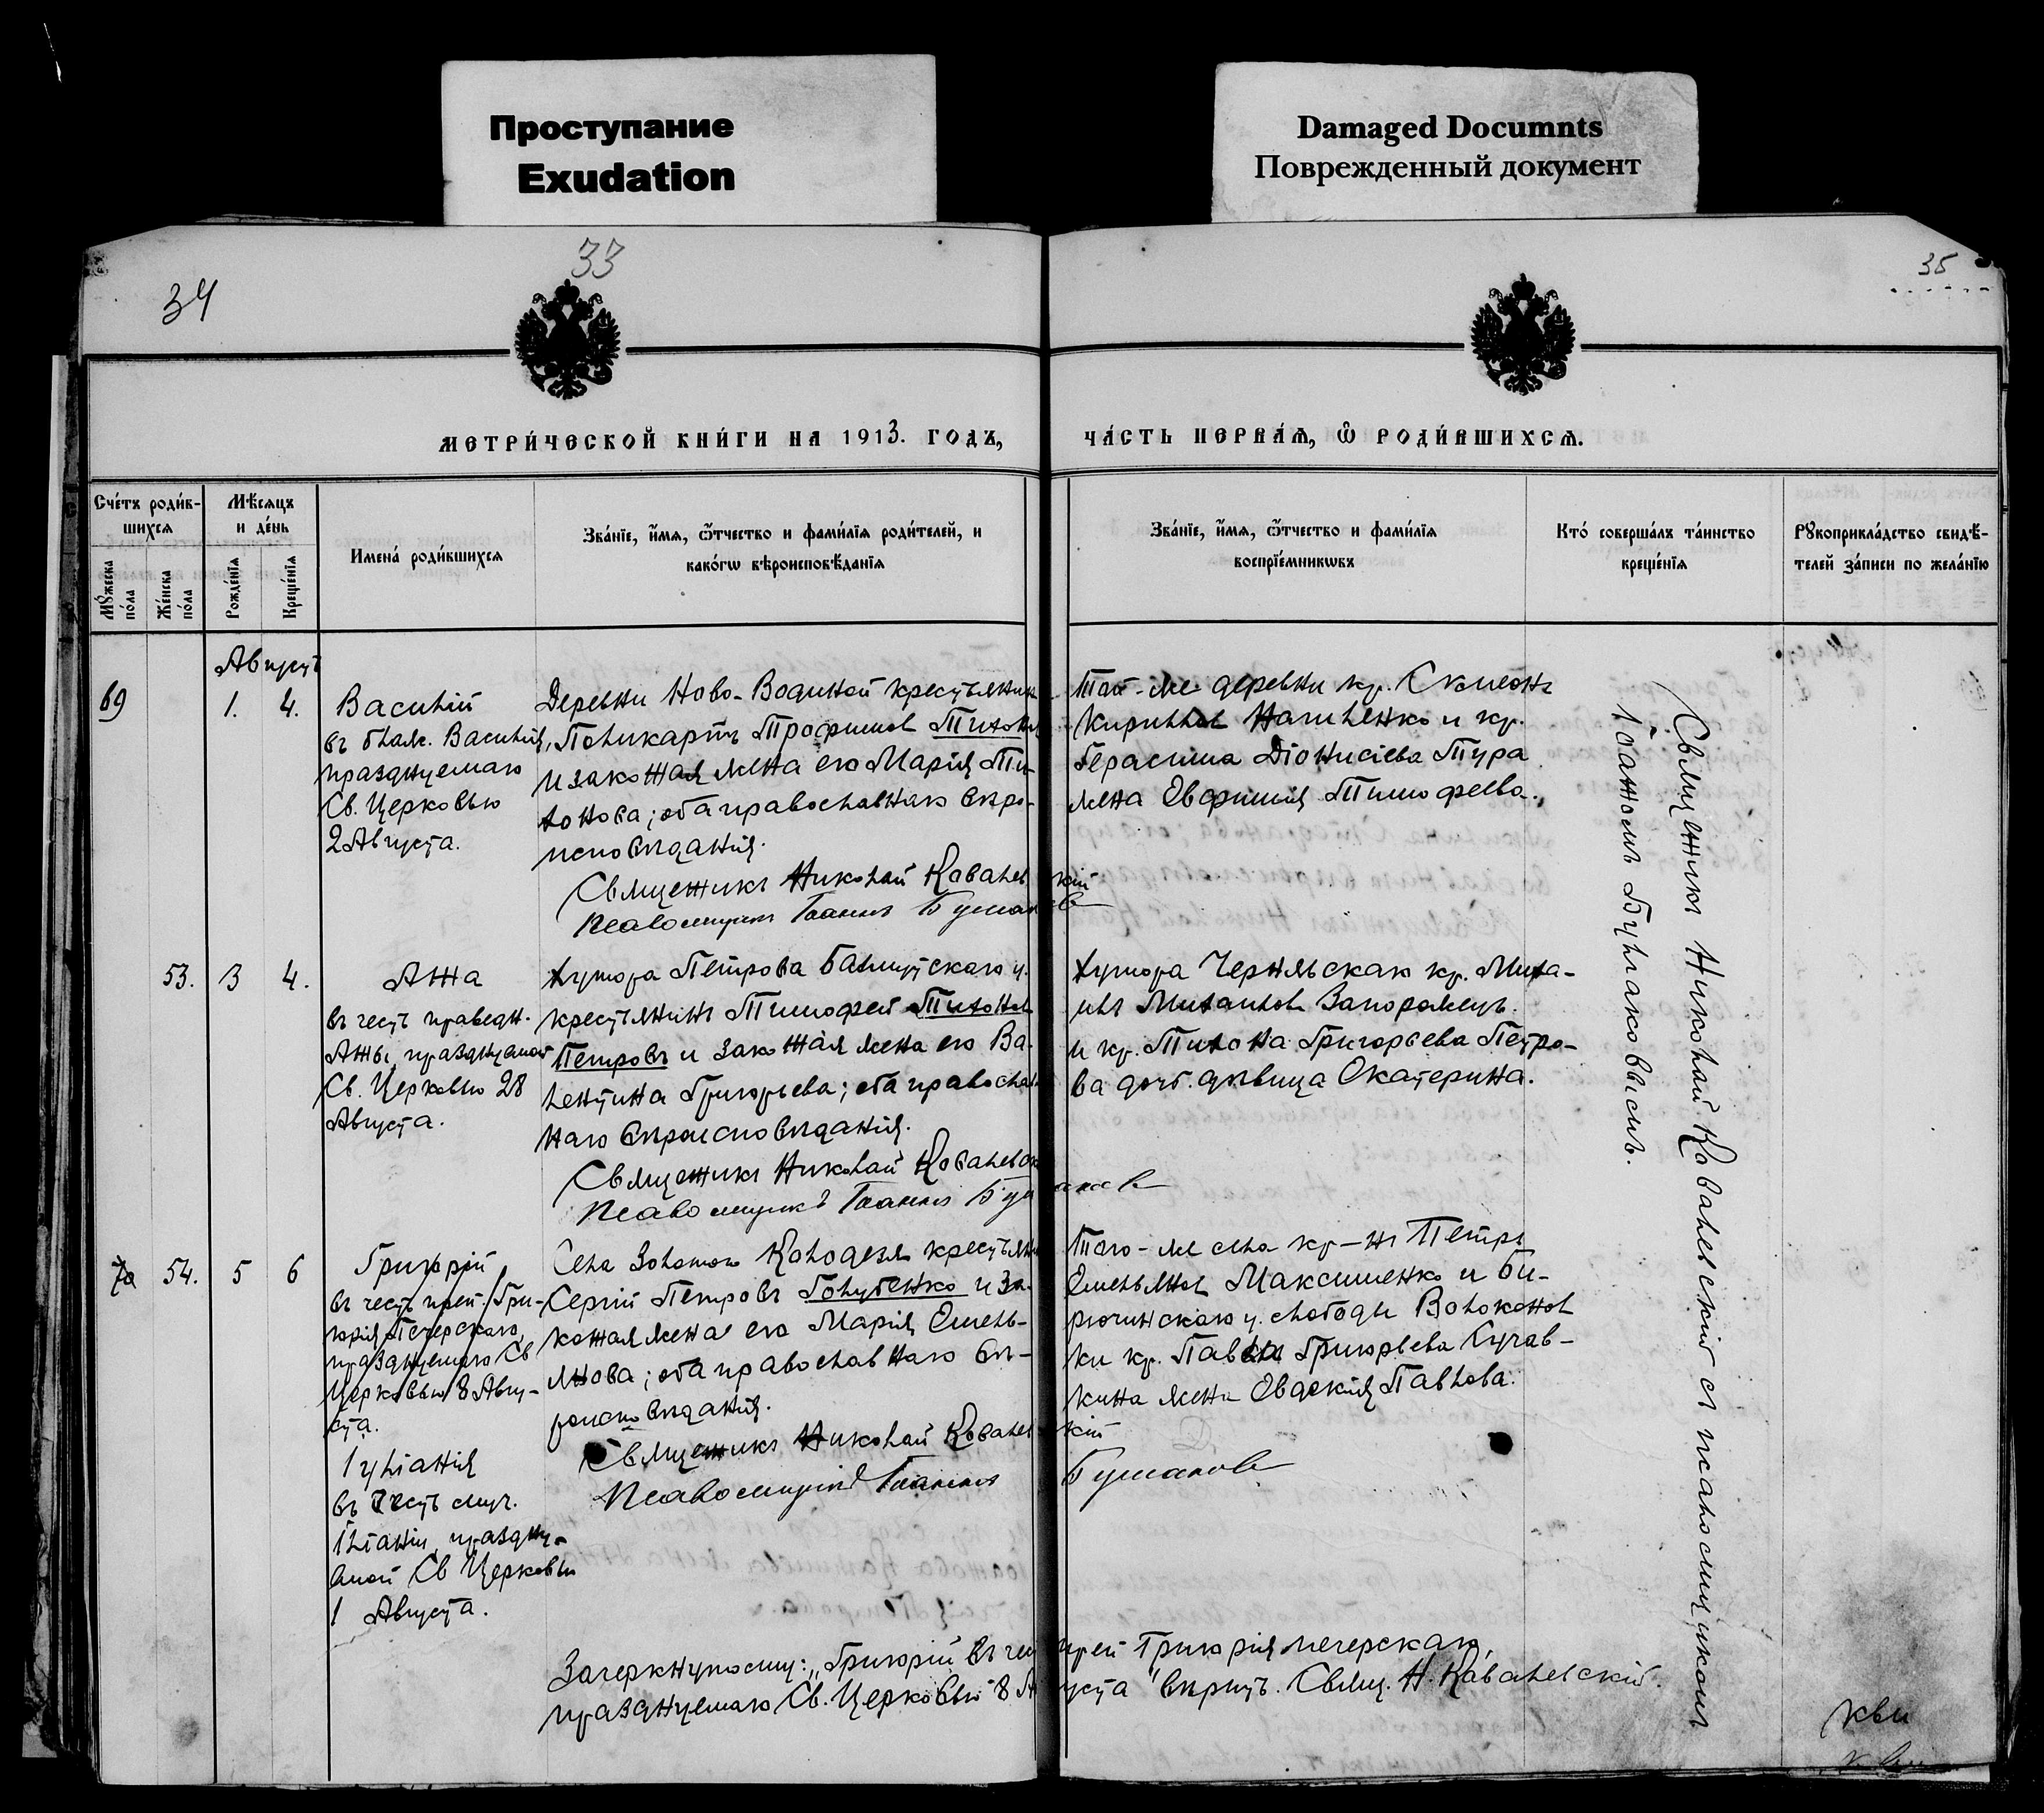 Проступание
Exudation
Damaged Documnts
Поврежденный документ
33
34
35
МЕТРИ́ЧЕСКОЙ КНИ́ГИ НА 1913. ГОДЪ,
ЧА́СТЬ ПЕРВА́Я, Ѿ РОДИ́ВШИХСЯ.
Сче́тъ роди́в-
шихся
Мѣсяцъ
и де́нь
Му́жеска
по́ла
Же́нска
по́ла
Рожде́нїя
Креще́нїя
Имена́ роди́вшихся
Зва́нїе, и́мя, ѻ́тчество и фами́лїя роди́телей, и
како́гѡ вѣроисповѣ́данїя
Зва́нїе, и́мя, ѻ́тчество и фами́лїя
воспрїе́мникѡвъ
Кто́ соверша́лъ та́инство
креще́нїя
Рукоприкла́дство свидѣ́-
телей за́писи по жела́нїю
Августъ
69
1.
4.
Василій
въ блаж. Василія,
празднуемаго
Св. Церковью
2 Августа.
Деревни Ново-Водиной крестьянинъ
Поликарпъ Трофимов Тихонов
и законная жена его Марія Ти-
хонова; оба православнаго вѣро-
исповѣданія.
Священникъ Николай Ковалевскій
Псаломщикъ Іоаннъ Булгаков
Той-же деревни кр. Симеонъ
Кириллов Налиленко и кр.
Герасима Діонисіева Тура
жена Евфимія Тимофеева.
53.
3
4.
Анна
въ честь праведн.
Анны, празднуемой
Св. Церковью 28
Августа.
Хутора Петрова Бахмутскаго у.
крестьянинъ Тимофей Тихонов
Петровъ и законная жена его Ва-
лентина Григорьева; оба православ
наго вѣроисповѣданія.
Священникъ Николай Ковалевскій
Псаломщикъ Іоаннъ Булгаков
хутора Чернявскаго кр. Миха-
илъ Михаилов Запорожецъ
и кр. Тихона Григорьева Петро-
ва дочь дѣвица Екатерина.
70
54.
5
6
Григорій
въ честь преп. Гри-
горія Печерскаго,
празднуемаго Св
Церковью 8 Авгу-
ста.
Іуліанія
въ честь муч.
Іуліаніи, праздну-
емой Св Церковью
1 Августа.
Села Золотого Колодезя крестьянинъ
Сергій Петровъ Голубенко и за-
конная жена его Марія Емель-
янова; оба православнаго вѣ-
роисповѣданія.
Священникъ Николай Ковалевскій
Псаломщикъ Іоаннъ Булгаков
Того-же села кр-нъ Петръ
Емельянов Максименко и Би-
рючинскаго у. слободы Волоконов
ки кр. Павла Григорьева
жена Евдокія Павлова.
Священникъ Николай Ковалевскій съ псаломщикомъ
Іоанномъ Булгаковымъ.
Зачеркнутому: „Григорій въ чес преп Григорія печерскаго,
празднуемаго Св. Церковью 8 Августа" вѣрить. Свящ. Н. Ковалевскій.